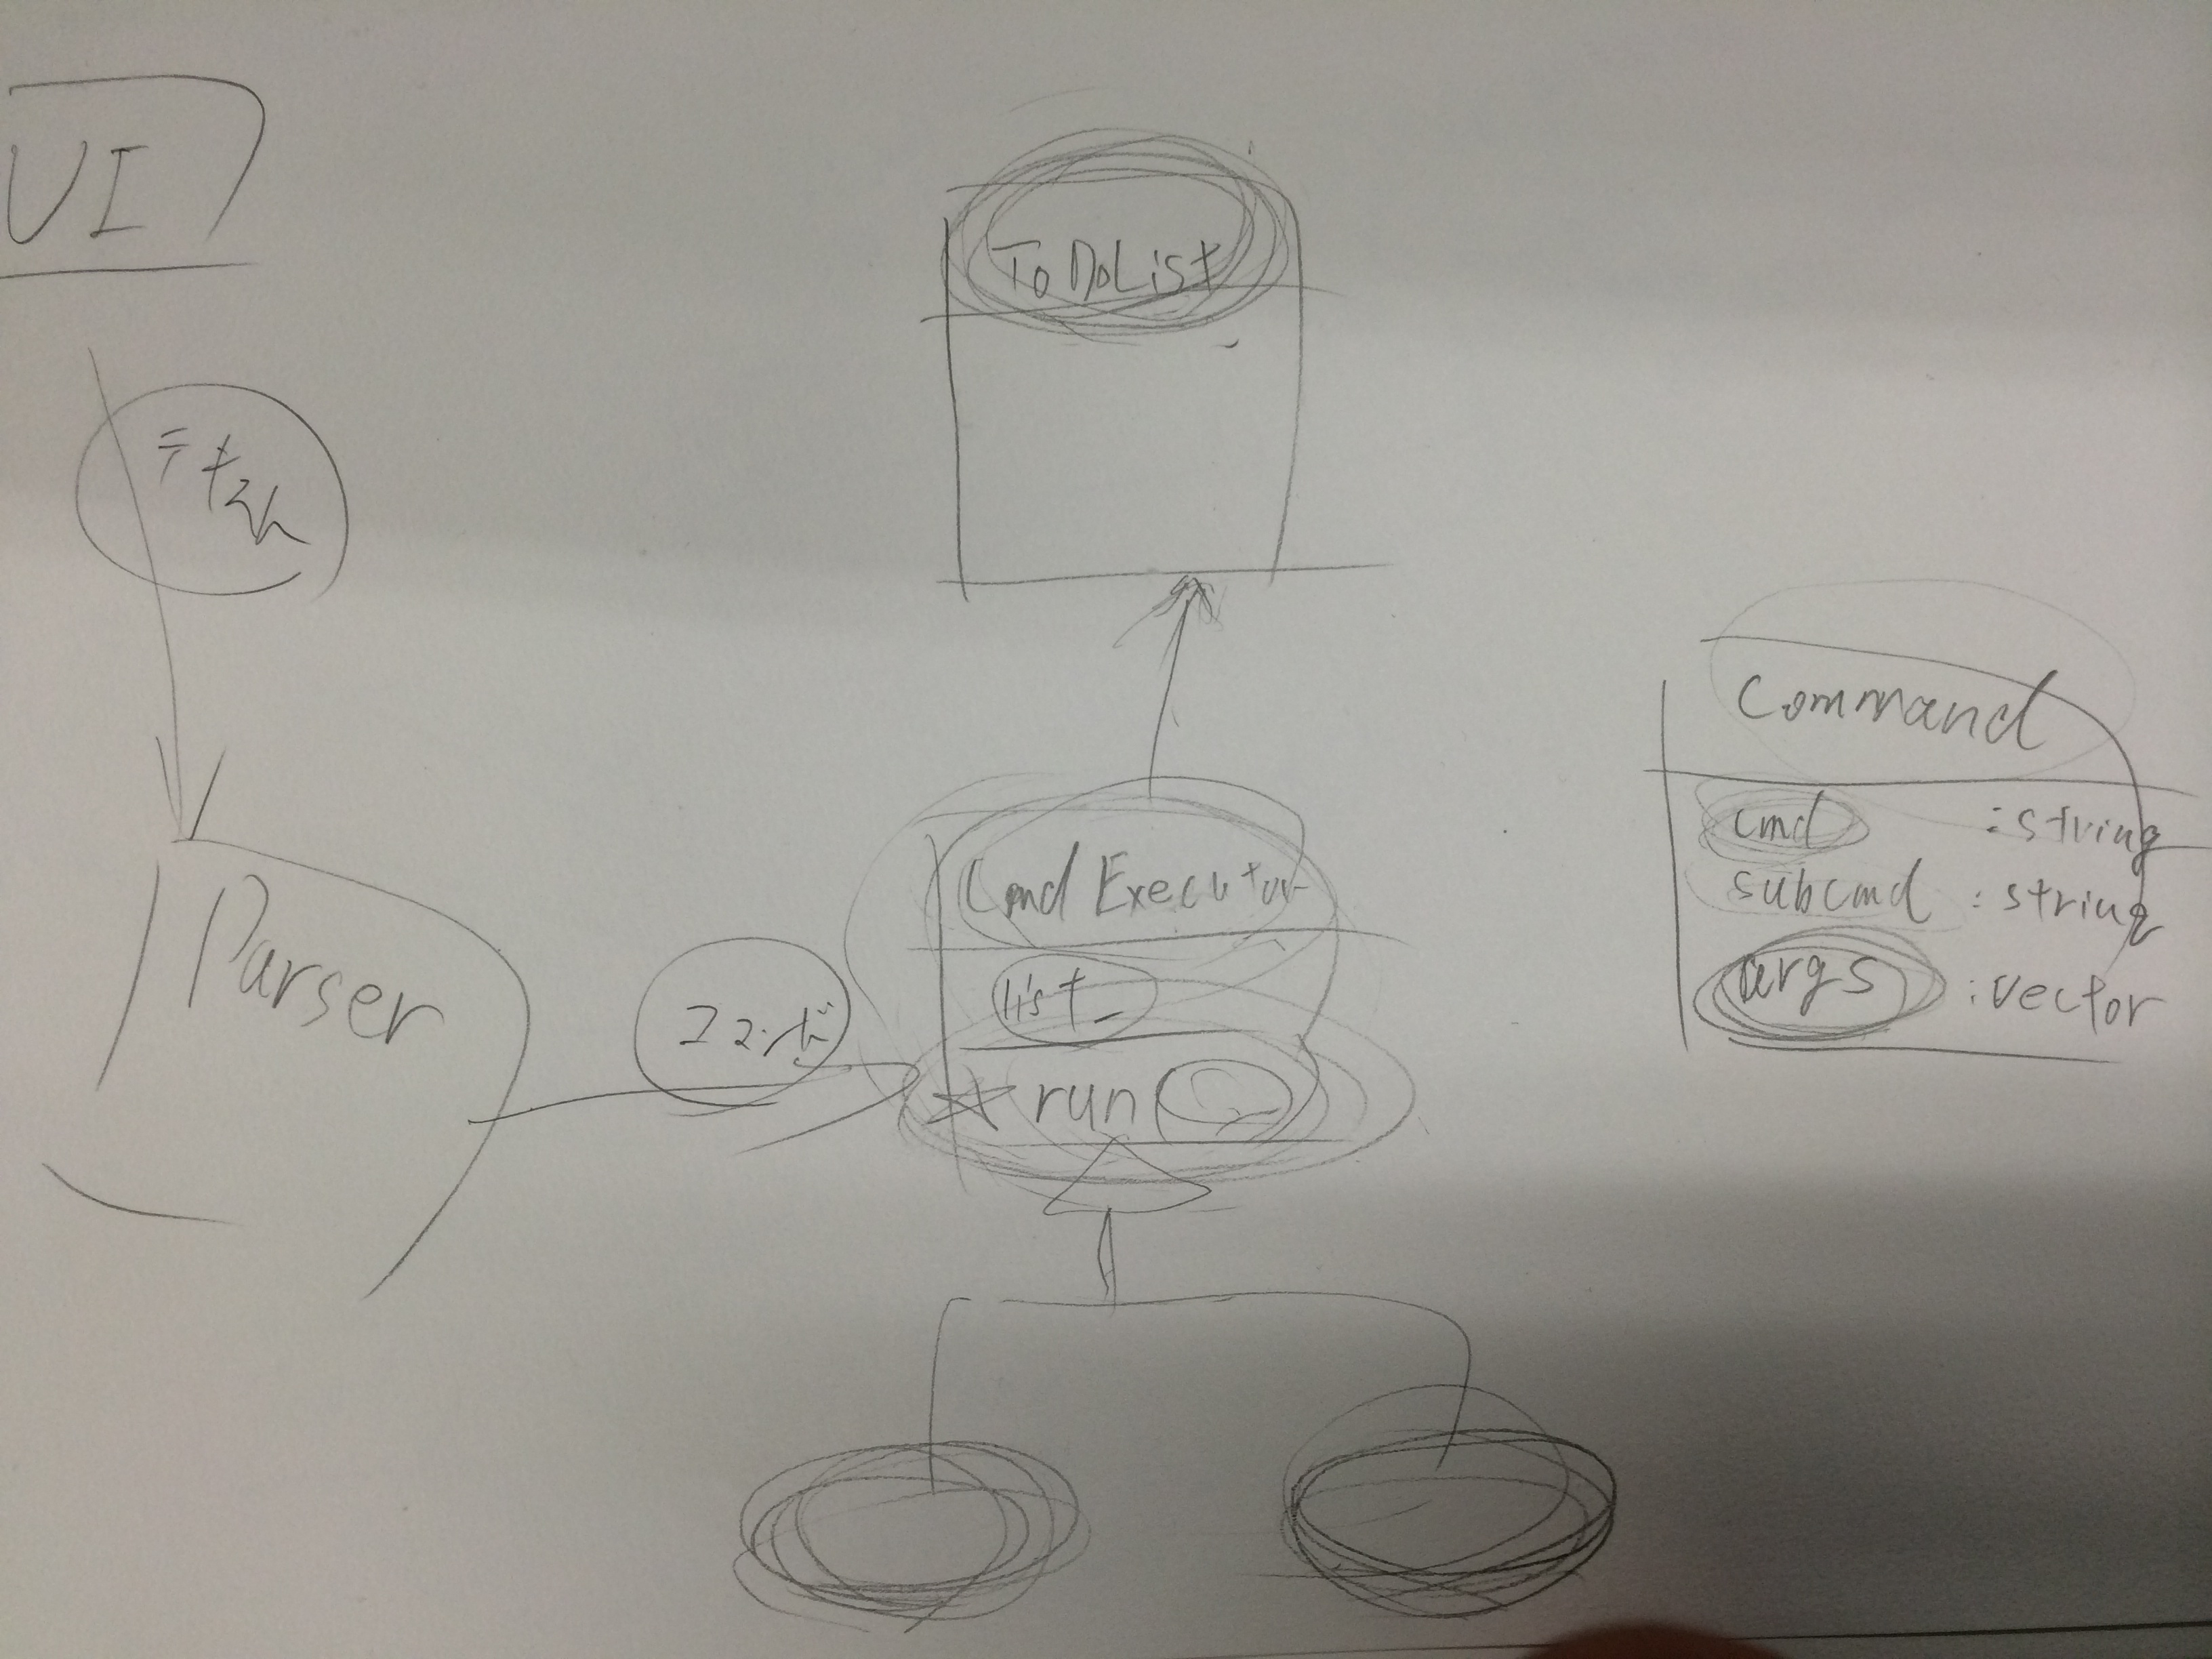 UI
テキスト
Parser
コマンド
ToDoList
Cmd Executor
list_
☆ run( )
Command
cmd : string
subcmd : string
args : vector